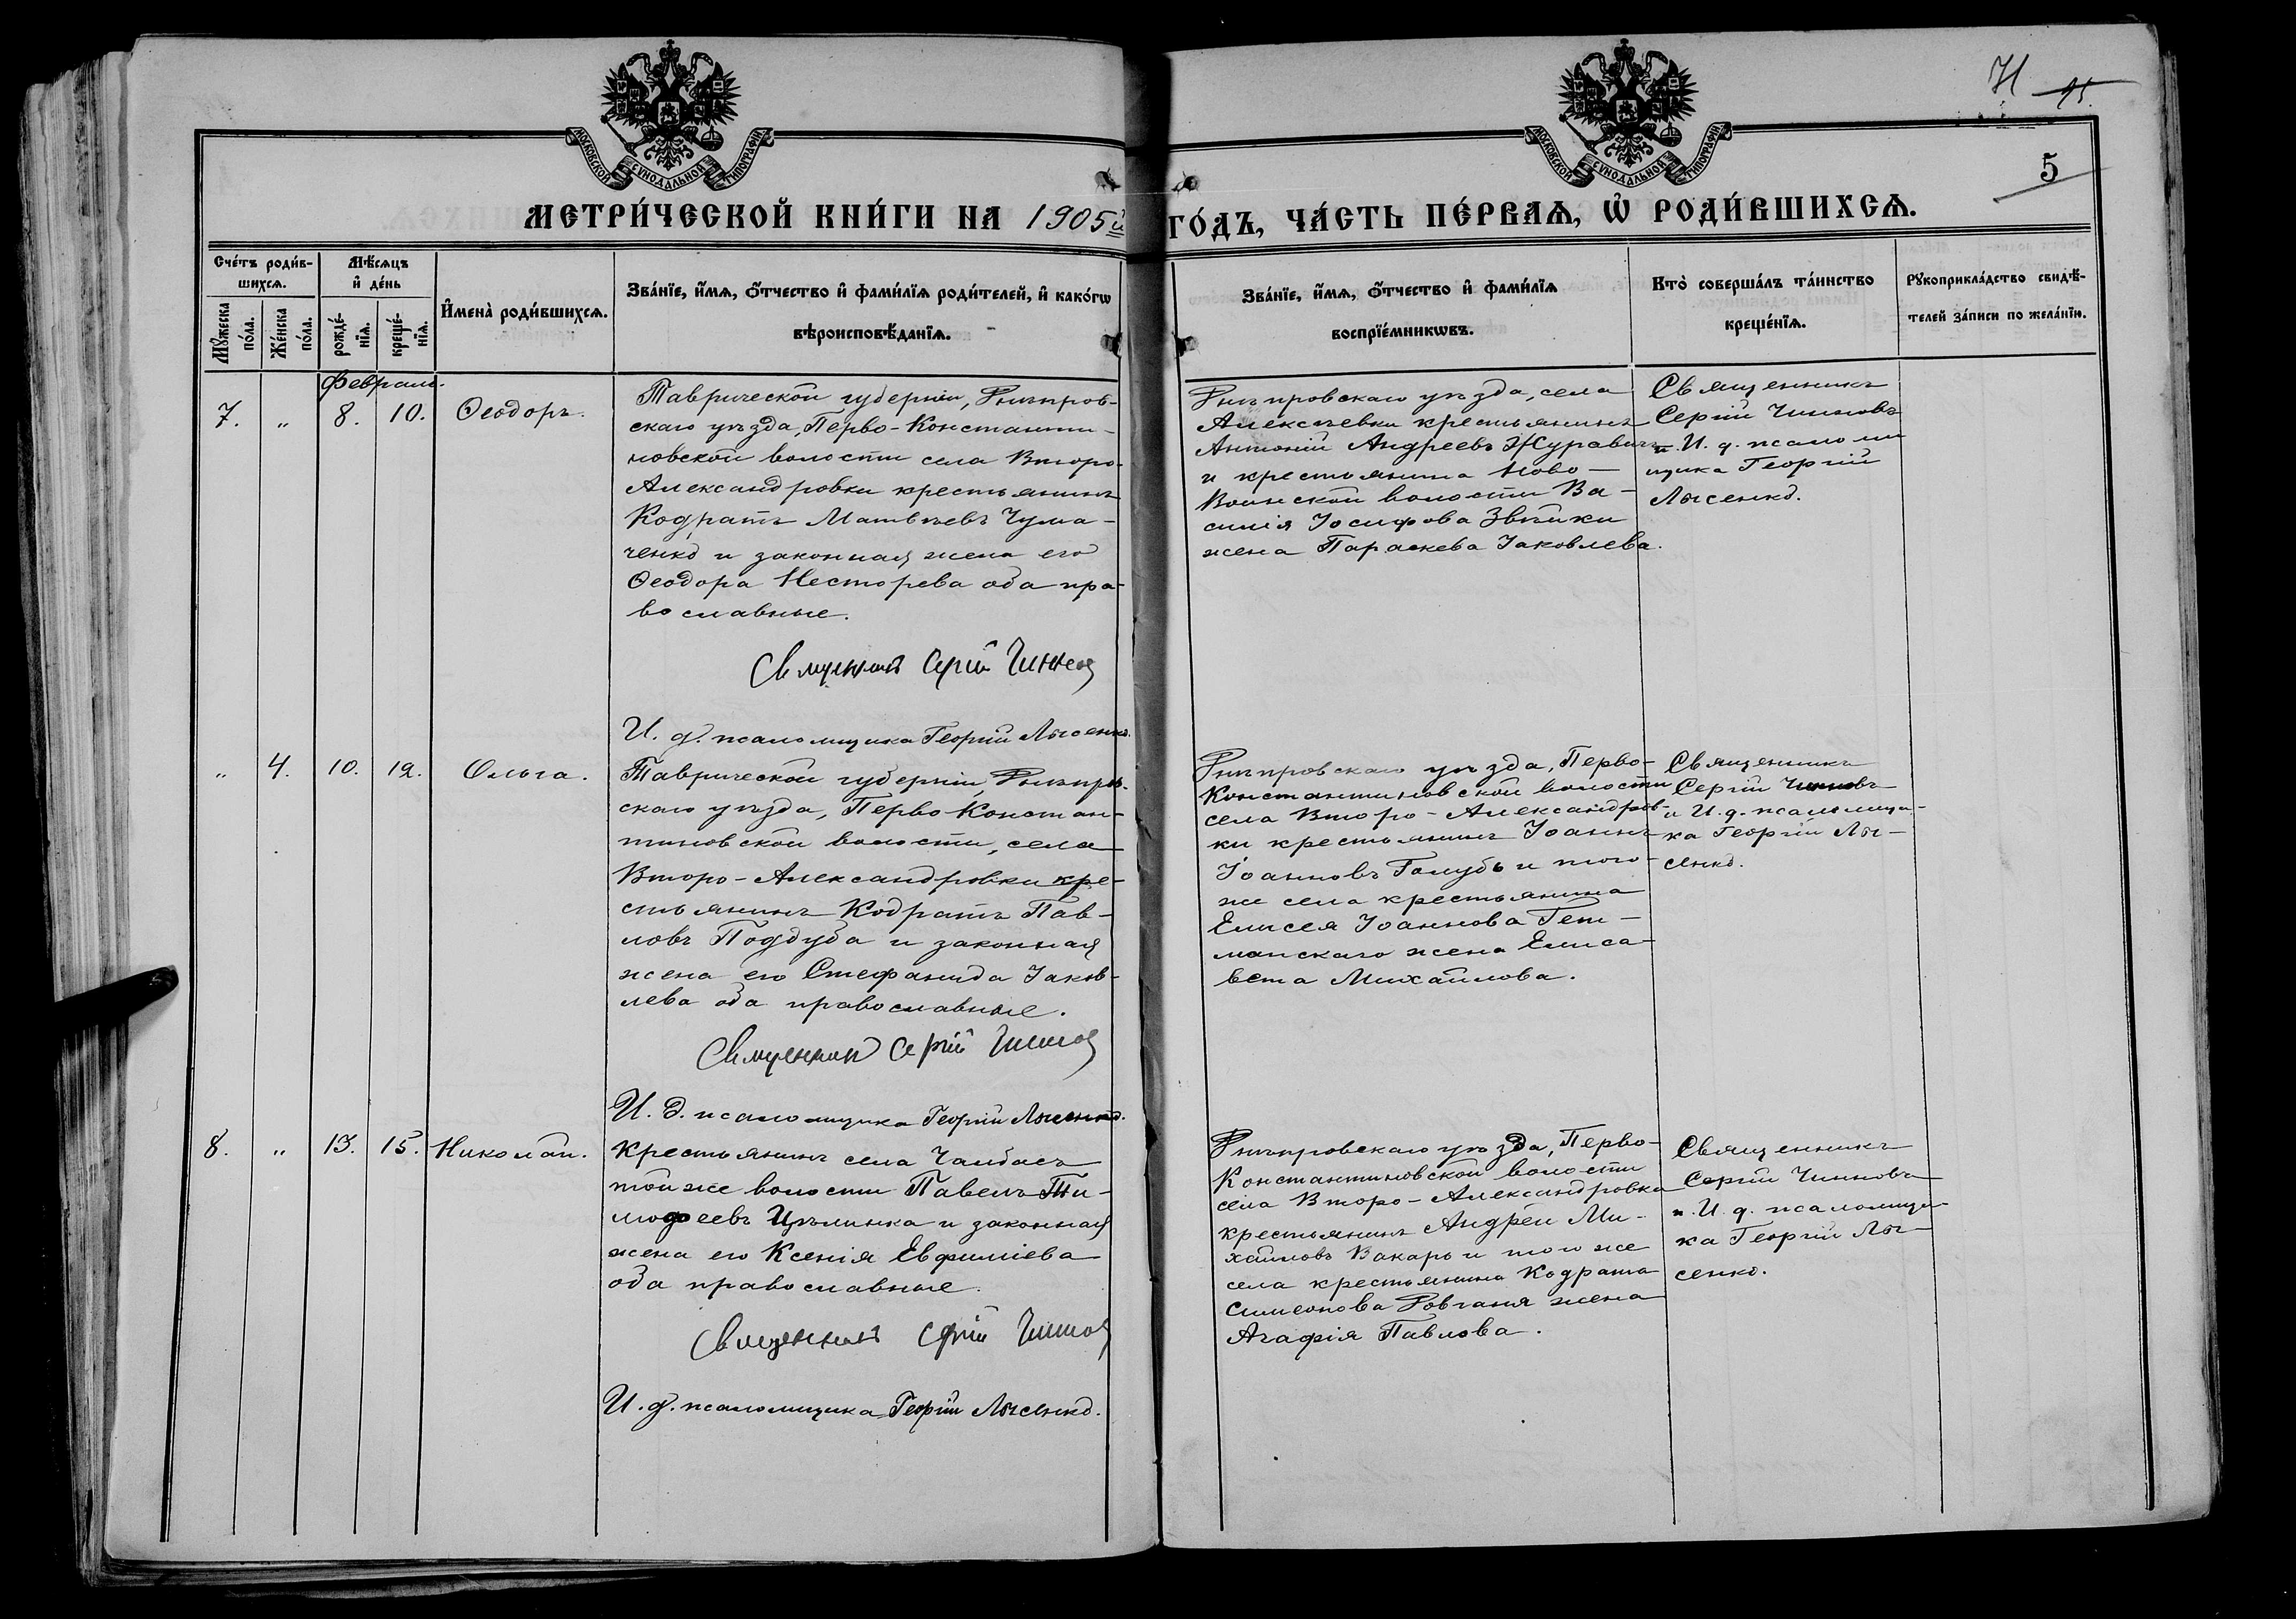 МОСКОВСКОЙ СѴНОДАЛЬНОЙ ТИПОГРАФІИ
МОСКОВСКОЙ СѴНОДАЛЬНОЙ ТИПОГРАФІИ
5
МЕТРИ́ЧЕСКОЙ КНИ́ГИ НА 1905й
ГО́ДЪ, ЧА́СТЬ ПЕ́РВАѦ, Ѡ҆ РОДИ́ВШИХСѦ.
Сче́тъ роди́в-
шихсѧ.
Мꙋ́жеска по́ла.
Же́нска по́ла.
Мѣ́сѧцъ
и҆ де́нь
рожде́-
нїѧ.
креще́-
нїѧ.
И҆мена̀ роди́вшихсѧ.
Зва́нїе, и҆́мѧ, ѻ҆́тчество и҆ фами́лїѧ роди́телей, и҆ како́гѡ
вѣроисповѣ́данїѧ.
Зва́нїе, и҆́мѧ, ѻ҆́тчество и҆ фами́лїѧ
воспрїе́мникѡвъ.
Кто̀ соверша́лъ та́инство
креще́нїѧ.
Рꙋкоприкла́дство свидѣ́-
телей за́писи по жела́нїю.
Февраль.
7. „ 8. 10. Ѳеодоръ.
Таврической губерніи, Днѣпров-
скаго уѣзда, Перво-Константи-
новской волости села Второ-
Александровки крестьянинъ
Кодратъ Матвѣевъ Чума-
ченко и законная жена его
Ѳеодора Несторева оба пра-
вославные.
Священникъ Сергій Чинновъ
И. д. псаломщика Георгій Лысенко.
Днѣпровскаго уѣзда, села
Алексѣевки крестьянинъ
Антоній Андреевъ Журавичъ
и крестьянина Ново-
Воинской волости Ва-
силія Іосифова Звѣики
жена Параскева Іаковлева.
Священникъ
Сергій Чинновъ
и И. д. псалом
щика Георгій
Лысенко.
„ 4. 10. 12. Ольга.
Таврической губерніи, Днѣпров-
скаго уѣзда, Перво-Констан-
тиновской волости, села
Второ-Александровки кре-
стьянинъ Кодратъ Пав-
ловъ Поддуба и законная
жена его Стефанида Іаков-
лева оба православные.
Священникъ Сергій Чинновъ
И. д. псаломщика Георгій Лысенко.
Днѣпровскаго уѣзда, Перво-
Константиновской волости
села Второ-Александров-
ки крестьянинъ Іоаннъ
Іоанновъ Голубь и того-
же села крестьянина
Елисея Іоаннова Гет-
манскаго жена Елиса-
вета Михайлова.
Священникъ
Сергій Чинновъ
и И. д. псаломщи-
ка Георгій Лы-
сенко.
8. „ 13. 15. Николай.
Крестьянинъ села Чалбасъ
той же волости Павелъ Ти-
мофеевъ Цѣлинка и законная
жена его Ксенія Евфиміева
оба православные.
Священникъ Сергій Чинновъ
И. д. псаломщика Георгій Лысенко.
Днѣпровскаго уѣзда, Перво-
Константиновской волости
села Второ-Александровка
крестьянинъ Андрей Ми-
хайловъ Вакарь и того же
села крестьянина Кодрата
Симеонова Довганя жена
Агафія Павлова.
Священникъ
Сергій Чинновъ
и. И. д. псаломщи-
ка Георгій Лы-
сенко.